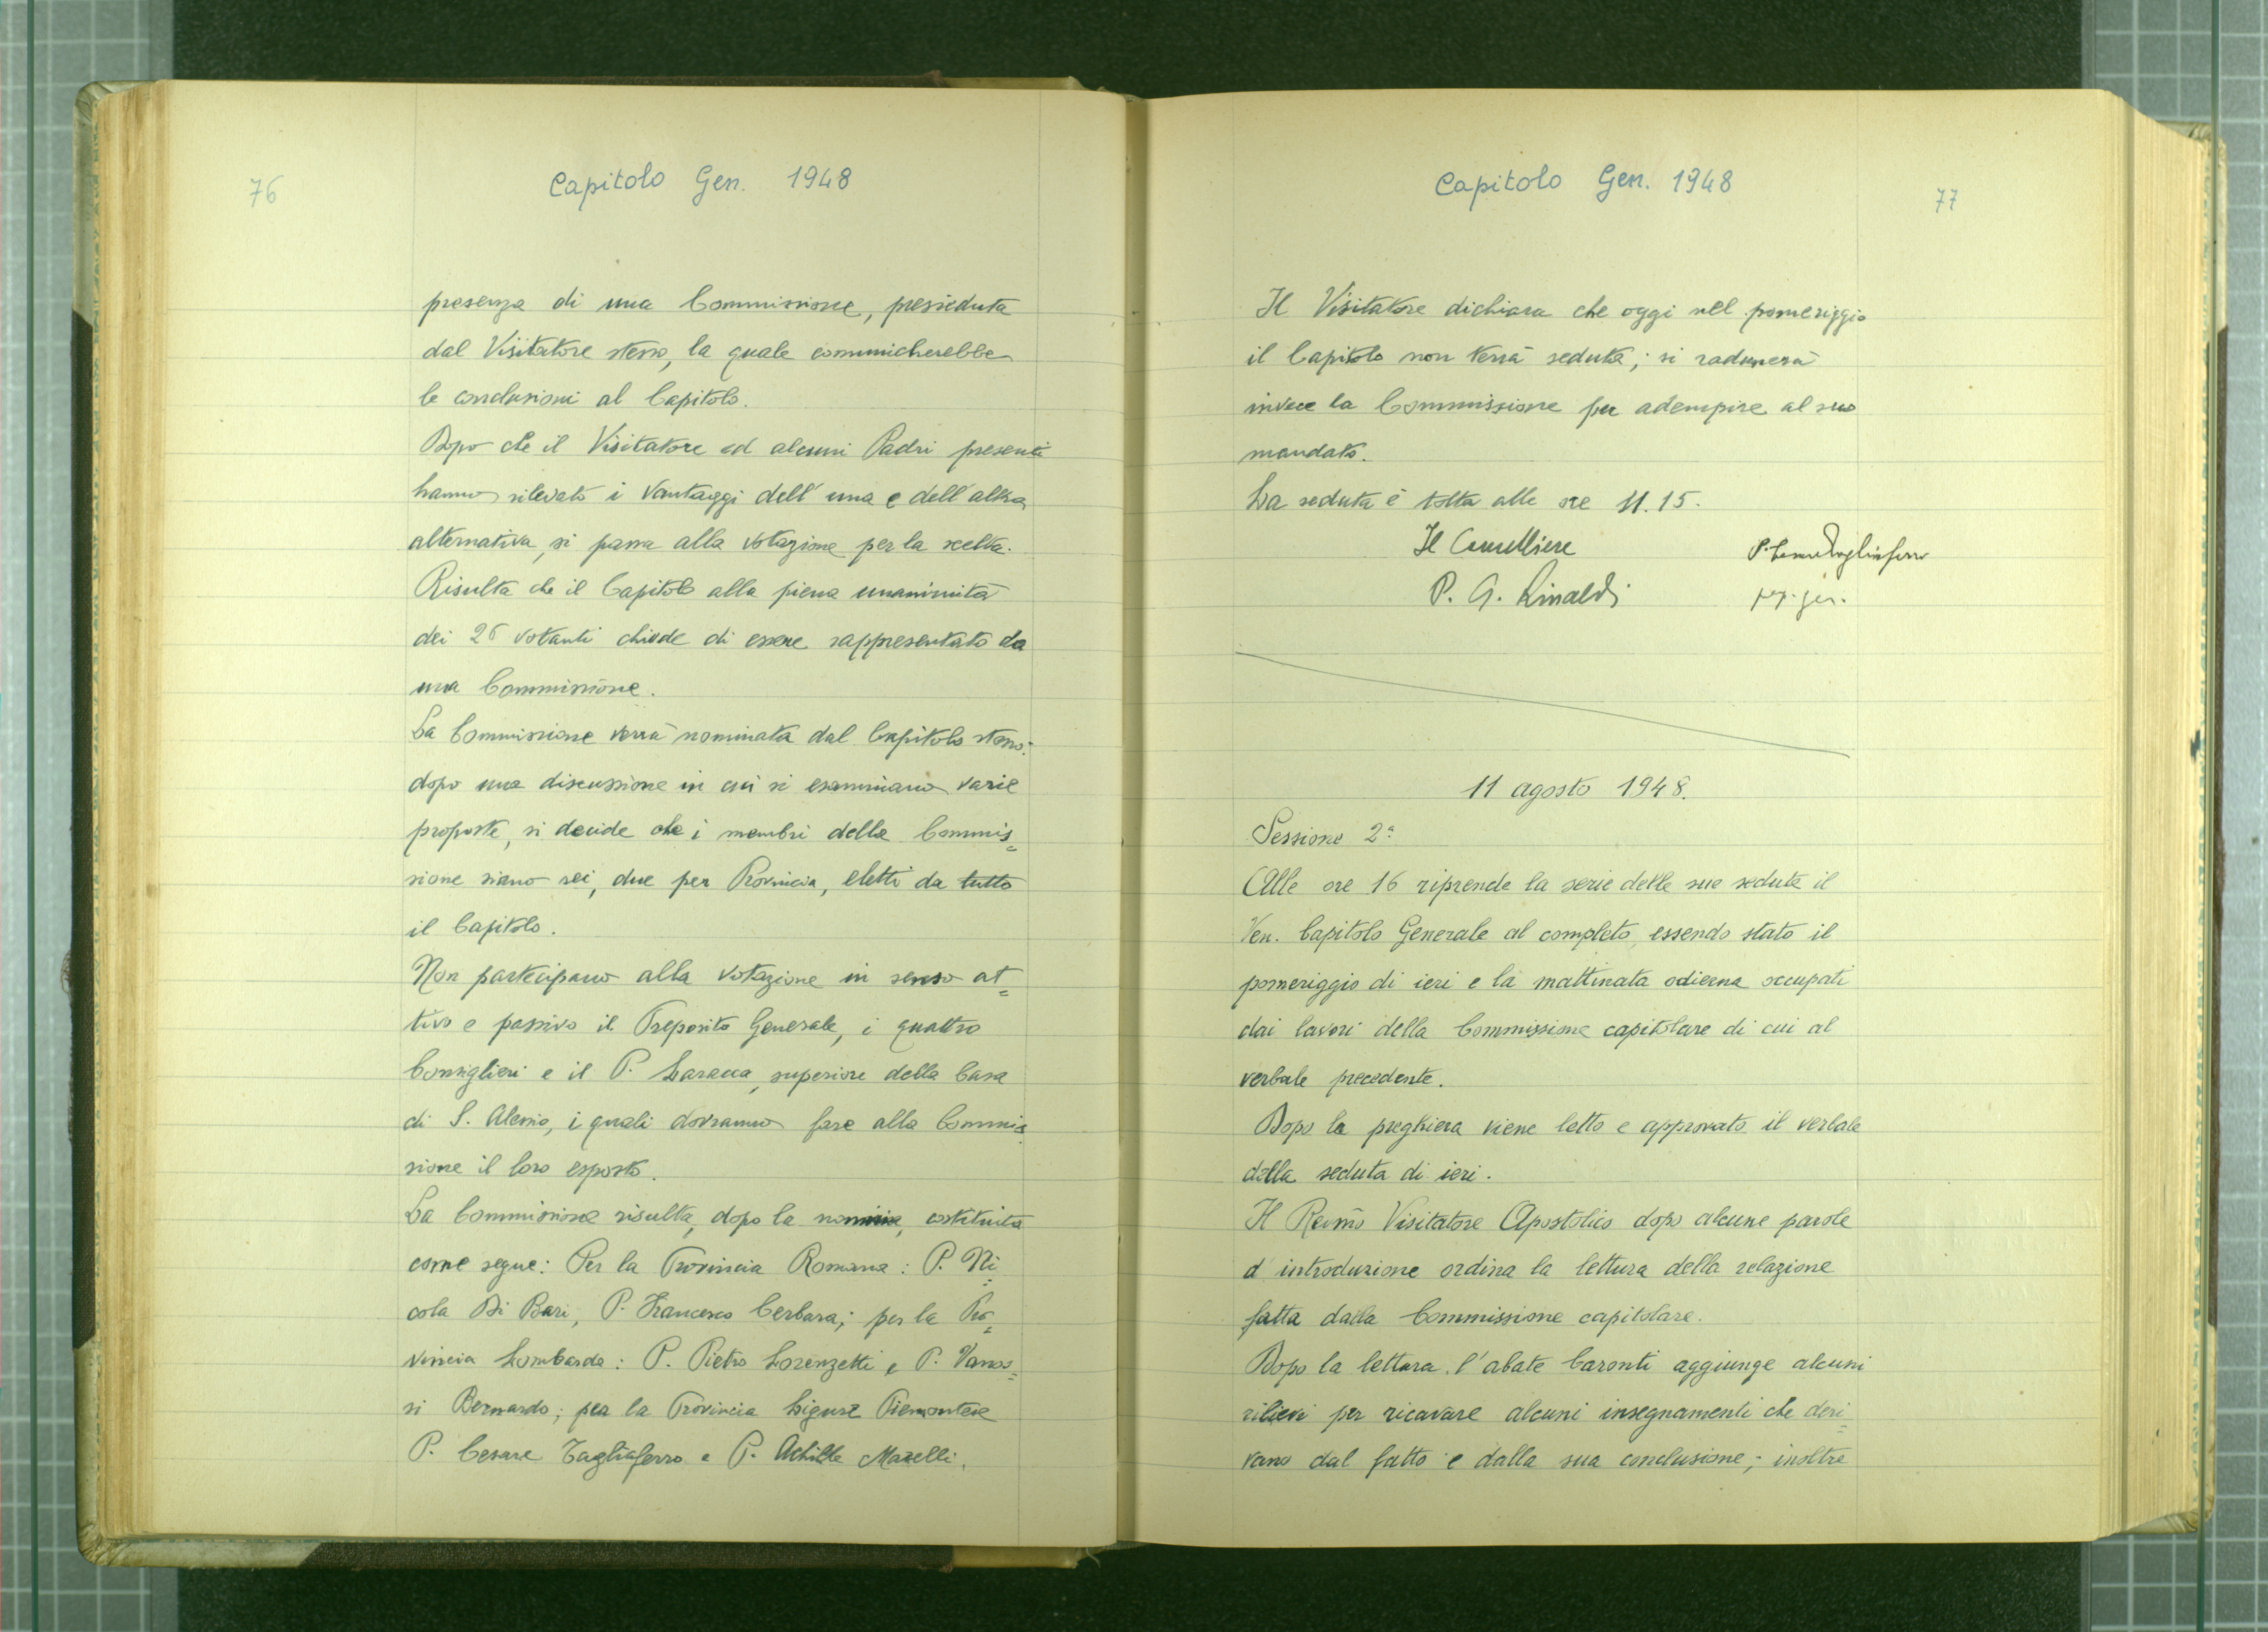 76
Capitolo Gen. 1948
presenza di una Commissione, presieduta
dal Visitatore stesso, la quale comunicherebbe
le conclusioni al Capitolo.
Dopo che il Visitatore ed alcuni Padri presenti
hanno rilevato i vantaggi dell'una e dell'altra
alternativa, si passa alla votazione per la scelta.
Risulta che il Capitolo alla piena unanimità
dei 26 votanti chiede di essere rappresentato da
una Commissione.
La Commissione verrà nominata dal Capitolo stesso:
dopo una discussione in cui si esaminano varie
proposte, si decide che i membri della Commis=
sione siano sei, due per Provincia, eletti da tutto
il Capitolo.
Non partecipano alla votazione in senso at=
tivo e passivo il Preposito Generale, i quattro
Consiglieri e il P. Laracca, superiore della Casa
di S. Alessio, i quali dovranno fare alla Commis
sione il loro esposto.
La Commissione risulta, dopo la nomina, costituita
come segue: Per la Provincia Romana: P. Ni=
cola Di Bari, P. Francesco Cerbara; per la Pro=
vincia Lombarda: P. Pietro Lorenzetti e P. Vanos=
si Bernardo; per la Provincia Ligure Piemontese
P. Cesare Tagliaferro e P. Achille Marelli.
Capitolo Gen. 1948
77
Il Visitatore dichiara che oggi nel pomeriggio
il Capitolo non terrà seduta; si radunerà
invece la Commissione per adempire al suo
mandato.
La seduta è tolta alle ore 11.15.
Il Cancelliere
P. G. Rinaldi
P. Tagliaferro
11 agosto 1948.
Sessione 2ª
Alle ore 16 riprende la serie delle sue sedute il
Ven. Capitolo Generale al completo, essendo stato il
pomeriggio di ieri e la mattinata odierna occupati
dai lavori della Commissione capitolare di cui al
verbale precedente.
Dopo la preghiera viene letto e approvato il verbale
della seduta di ieri.
Il Rev.mo Visitatore Apostolico dopo alcune parole
d'introduzione ordina la lettura della relazione
fatta dalla Commissione capitolare.
Dopo la lettura l'abate Caronti aggiunge alcuni
rilievi per ricavare alcuni insegnamenti che deri=
vano dal fatto e dalla sua conclusione; inoltre